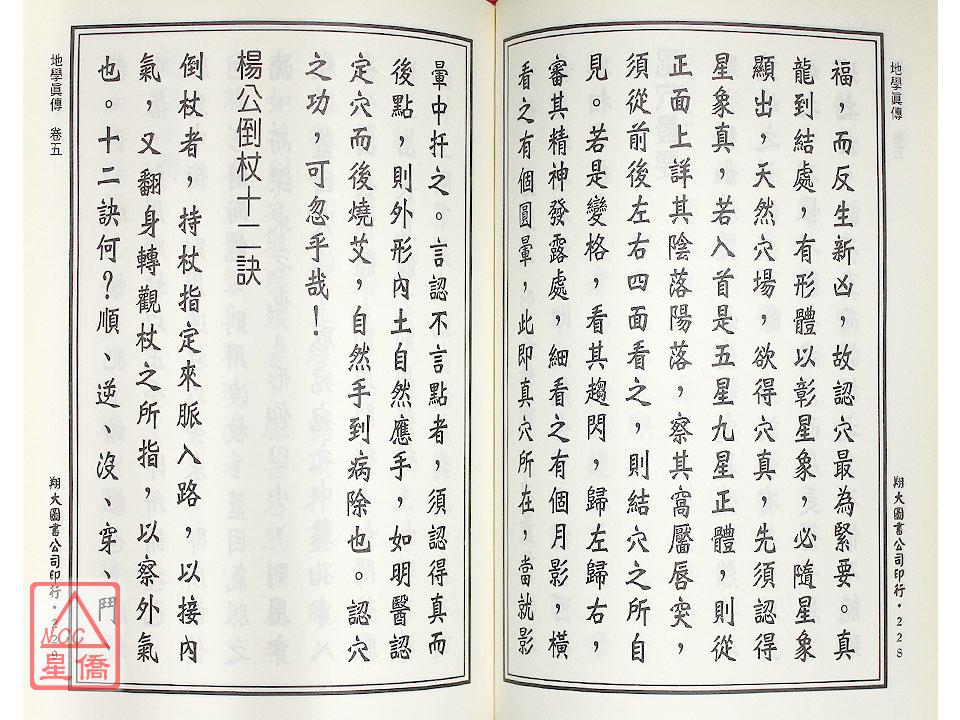 地學眞傳
福，而反生新凶，故認穴最為緊要。真
龍到結處，有形體以彰星象，必隨星象
顯出，天然穴場，欲得穴真，先須認得
星象真，若入首是五星九星正體，則從
正面上詳其陰落陽落，察其窩靨唇突，
須從前後左右四面看之，則結穴之所自
見。若是變格，看其趨閃，歸左歸右，
審其精神發露處，細看之有個月影，橫
看之有個圓暈，此即真穴所在，當就影
翔大圖書公司印行・228
暈中扦之。言認不言點者，須認得真而
後點，則外形內土自然應手，如明醫認
定穴而後燒艾，自然手到病除也。認穴
之功，可忽乎哉！
楊公倒杖十二訣
倒杖者，持杖指定來脈入路，以接內
氣，又翻身轉觀杖之所指，以察外氣
也。十二訣何？順、逆、沒、穿、鬥
地學眞傳 卷五
翔大圖書公司印行・229
NCC
星僑